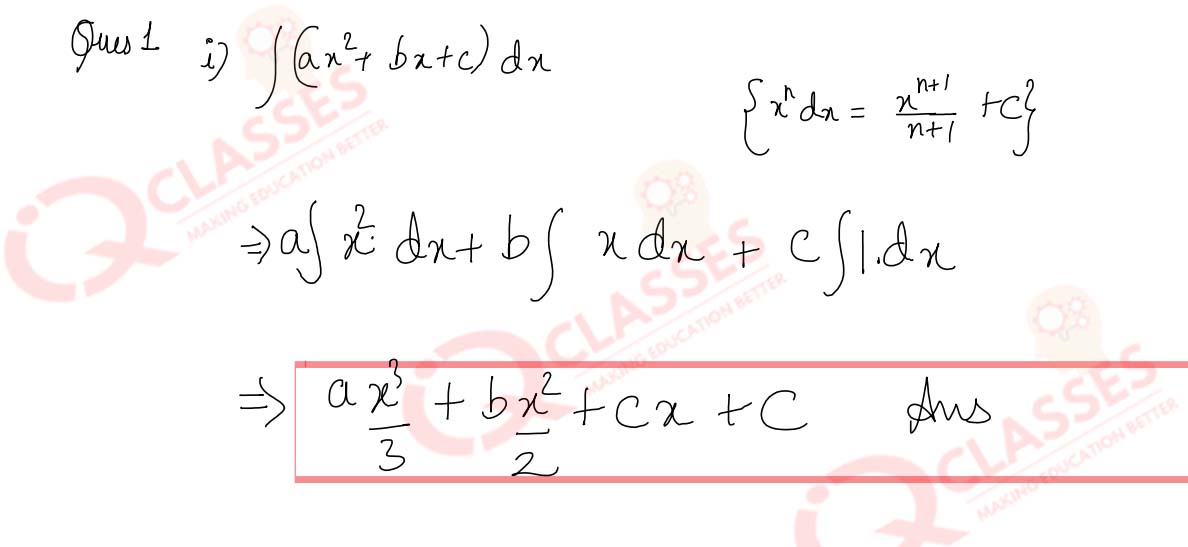 Ques 1 i) ∫(ax²+ bx+c) dx
{xⁿ dx = xⁿ⁺¹/n+1 +C}
⇒ a∫ x². dx + b∫ x dx + c ∫1.dx
⇒ a x³/3 + b x²/2 + cx + C Ans
IQ CLASSES
MAKING EDUCATION BETTER
IQ CLASSES
MAKING EDUCATION BETTER
IQ CLASSES
MAKING EDUCATION BETTER